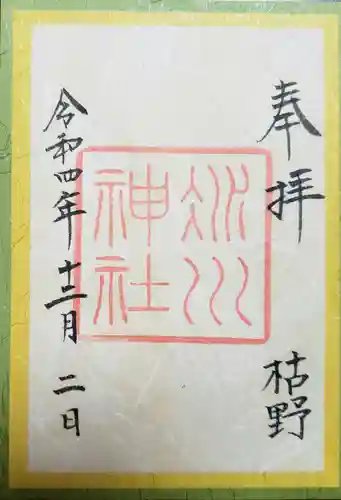 奉拝
枯野
冰川
神社
令和四年十二月二日